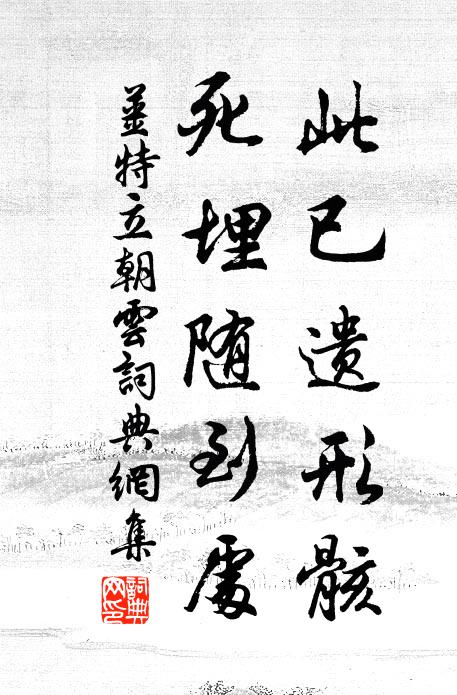 此已遗形骸
死埋随到處
薑特立朝雲詞典網集
詞典
网印